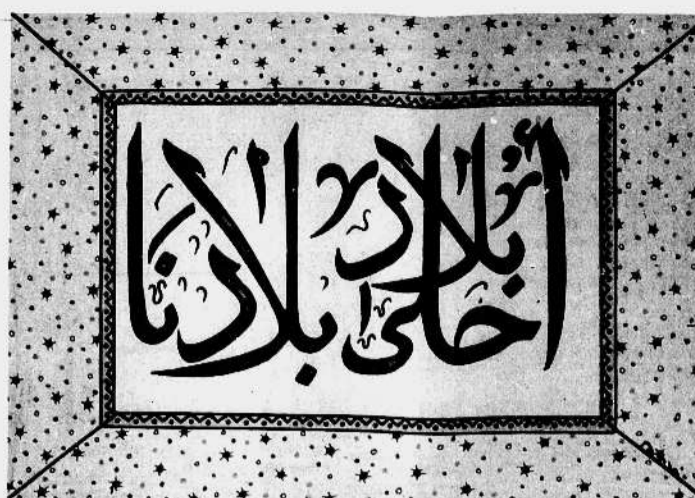 أحلى بلاد بلادنا